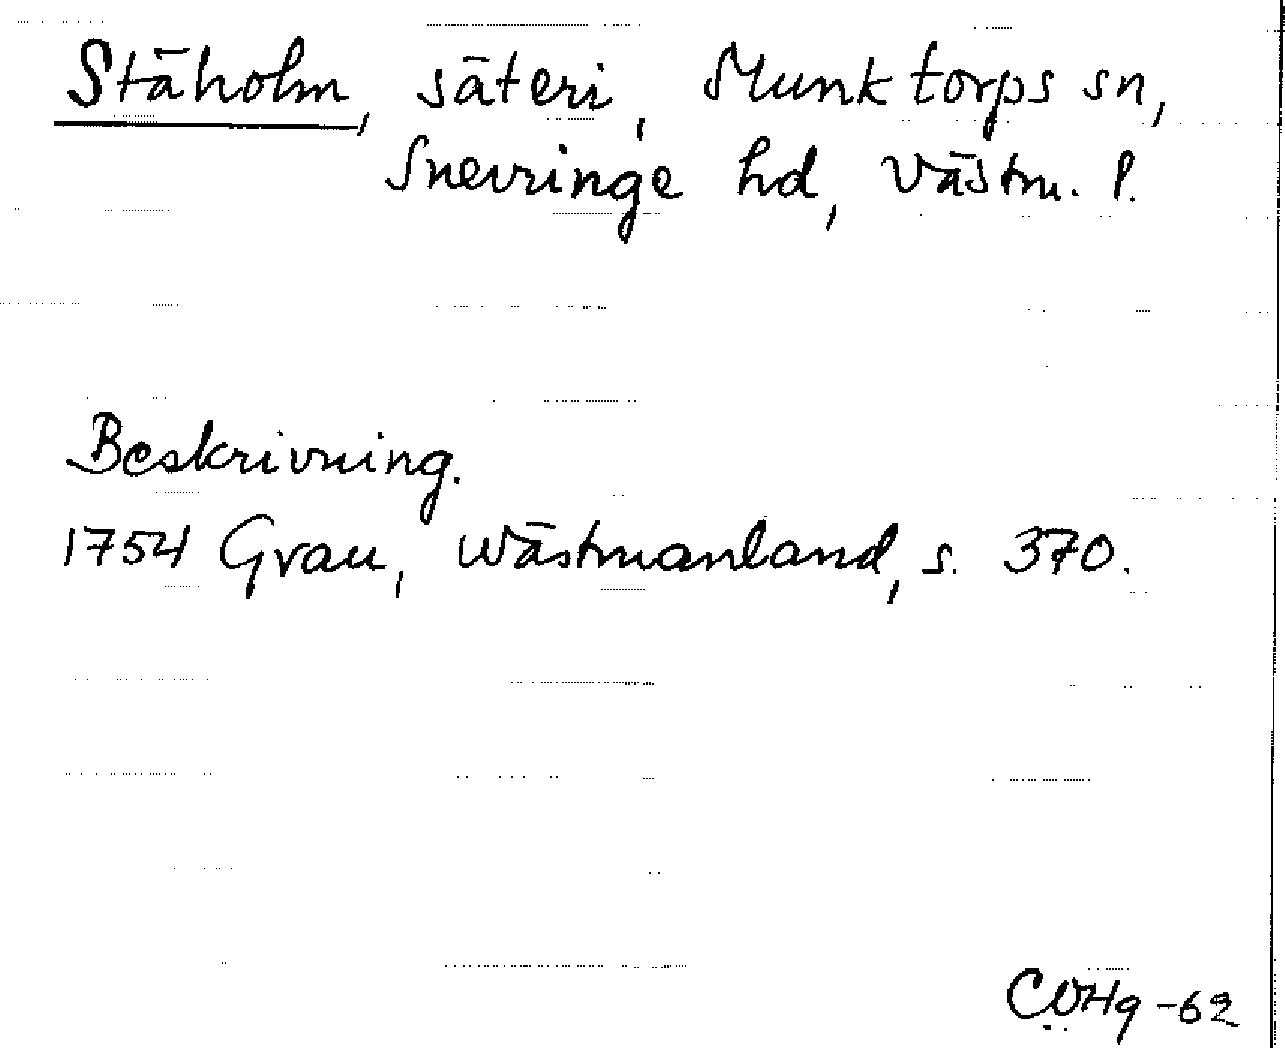 Stäholm, säteri, Munktorps sn,
Snevringe hd, Västm. l.
Beskrivning.
1754 Grau, Wästmanland, s. 370.
CWHg -62